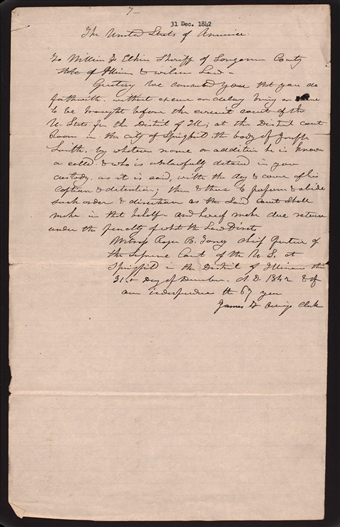 7
31 Dec. 1842
The United States of America
To William F Elkin Sheriff of Sangamon County
State of Illinois &
Greeting We command you that you do
forthwith, without excuse or delay bring or cause
to be brought before the circuit court of the
U. States for the District of Ills, at the District court
Room in the city of Springfield the body of Joseph
Smith, by whatever name or addition he is known
or called & who is unlawfully detained in your
custody, as it is said, with the day & cause of his
caption & detention; then & there to perform & abide
such order & direction as the said Court shall
make in that behalf and hereof make due return
under the penalty of what the Law Directs
Witness Roger B. Taney chief Justice of
the supreme Court of the U. S. at
Springfield in the District of Illinois this
31st Day of December, A. D. 1842 & of
our independence the 67 year
James F Owings Clerk